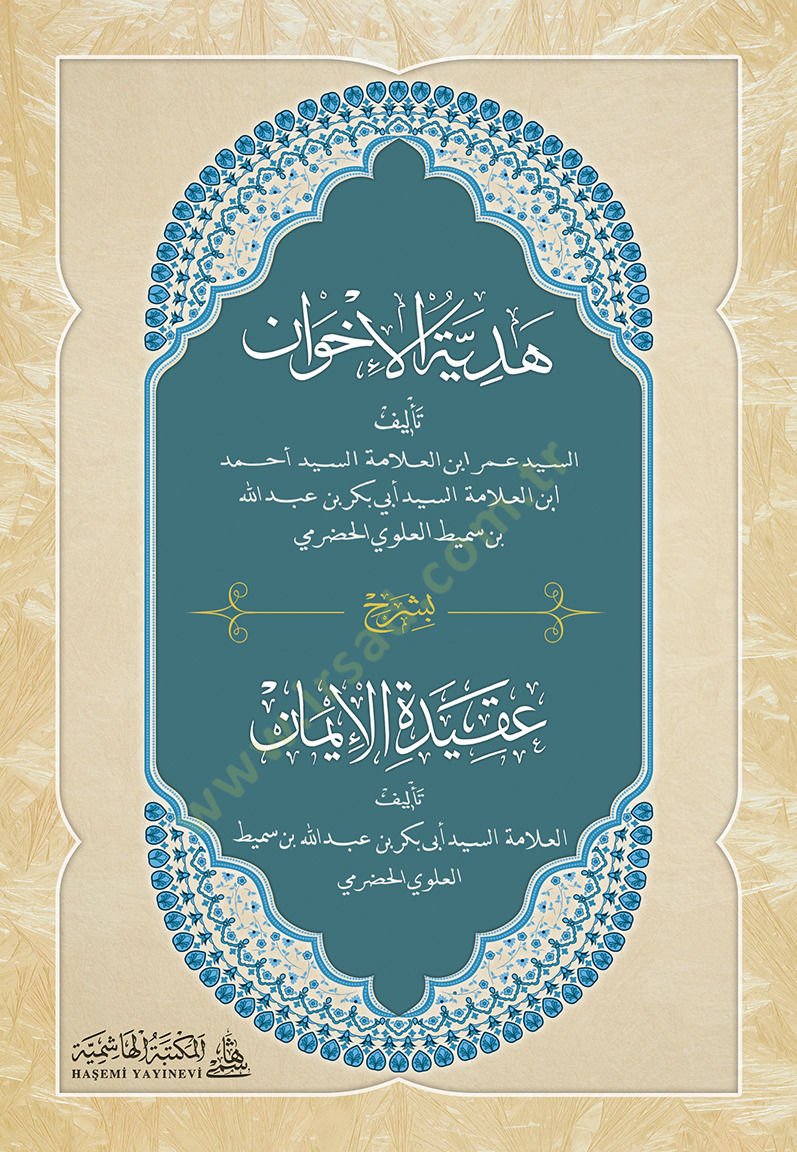 هَدِيَّةُ الْإِخْوَان
تَأْلِيفْ
السيد عمر ابن العلامة السيد أحمد
ابن العلامة السيد أبي بكر بن عبد الله
بن سميط العلوي الحضرمي
بِشَرحِ
عَقِيدَةِ الْإِيمَان
تَأْلِيفْ
العلامة السيد أبي بكر بن عبد الله بن سميط
العلوي الحضرمي
المَكْتَبَةُ الهَاشِمِيَّة
HAŞEMİ YAYINEVİ